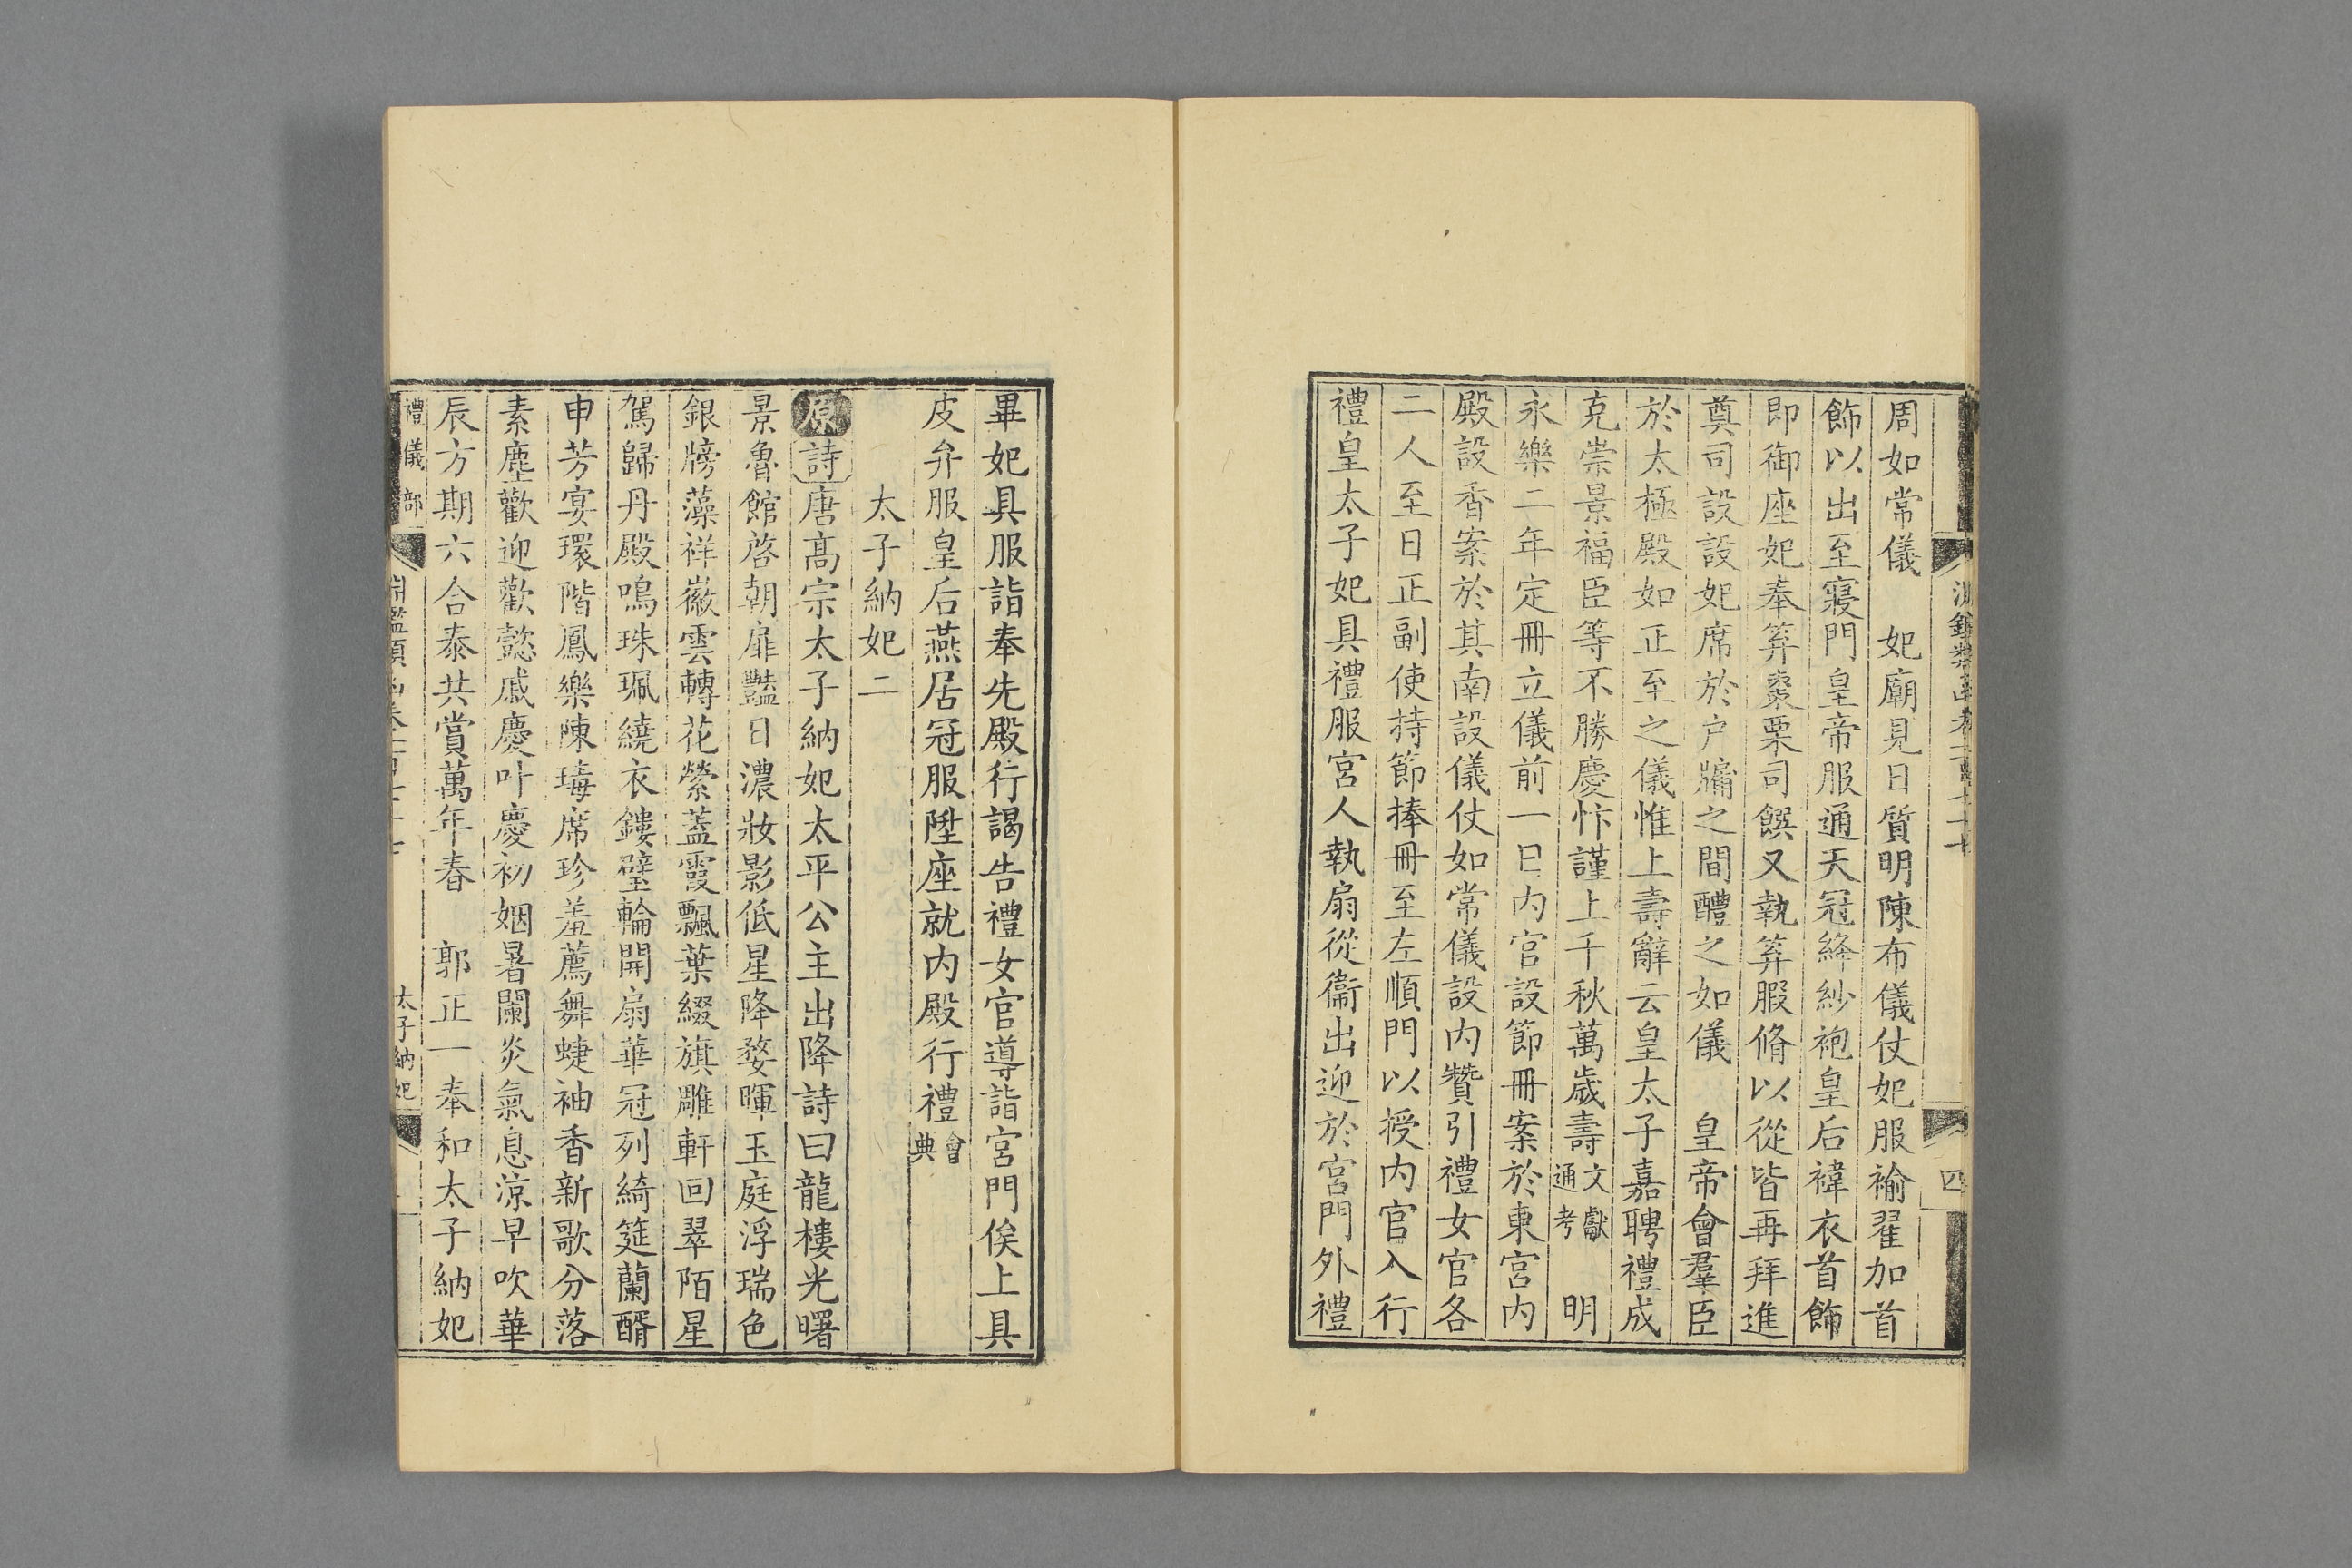 周如常儀　妃廟見日質明陳布儀仗妃服褕翟加首
飾以出至寢門皇帝服通天冠絳紗袍皇后褘衣首飾
即御座妃奉笲棗栗司饌又執笲腶脩以從皆再拜進
奠司設設妃席於戶牖之間醴之如儀　皇帝會羣臣
於太極殿如正至之儀惟上壽辭云皇太子嘉聘禮成
克崇景福臣等不勝慶忭謹上千秋萬歲壽文獻通考　明
永樂二年定冊立儀前一日內官設節冊案於東宮內
殿設香案於其南設儀仗如常儀設內贊引禮女官各
二人至日正副使持節捧冊至左順門以授內官入行
禮皇太子妃具禮服宮人執扇從衞出迎於宮門外禮
四
畢妃具服詣奉先殿行謁告禮女官導詣宮門俟上具
皮弁服皇后燕居冠服陞座就內殿行禮會典
太子納妃二
原詩唐高宗太子納妃太平公主出降詩曰龍樓光曙
景魯館啓朝扉豔日濃妝影低星降婺暉玉庭浮瑞色
銀牓藻祥徽雲轉花縈蓋霞飄葉綴旗雕軒回翠陌星
駕歸丹殿鳴珠珮繞衣鏤璧輪開扇華冠列綺筵蘭醑
申芳宴環階鳳樂陳瑇席珍羞薦舞蜨袖香新歌分落
素塵歡迎歡懿戚慶叶慶初姻暑闌炎氣息涼早吹華
辰方期六合泰共賞萬年春　郭正一奉和太子納妃
禮儀部
太子納妃